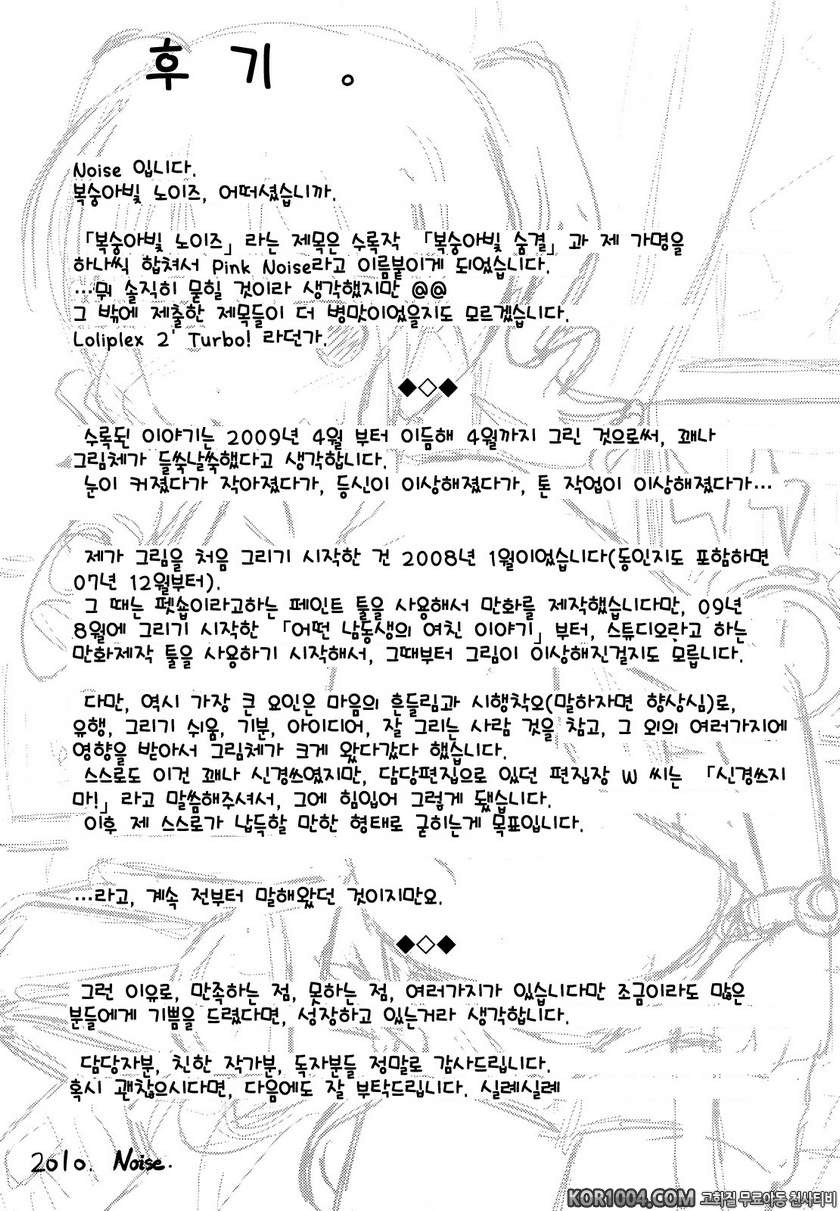 후 기 。
Noise 입니다.
복숭아빛 노이즈, 어떠셨습니까.
「복숭아빛 노이즈」 라는 제목은 수록작 「복숭아빛 숨결」 과 제 가명을
하나씩 합쳐서 Pink Noise라고 이름붙이게 되었습니다.
…뭐 솔직히 묻힐 것이라 생각했지만 @@
그 밖에 제출한 제목들이 더 병맛이었을지도 모르겠습니다.
Loliplex 2' Turbo! 라던가.
◆◇◆
수록된 이야기는 2009년 4월 부터 이듬해 4월까지 그린 것으로써, 꽤나
그림체가 들쑥날쑥했다고 생각합니다.
눈이 커졌다가 작아졌다가, 등신이 이상해졌다가, 톤 작업이 이상해졌다가…
제가 그림을 처음 그리기 시작한 건 2008년 1월이었습니다(동인지도 포함하면
07년 12월부터).
그 때는 펫숍이라고하는 페인트 툴을 사용해서 만화를 제작했습니다만, 09년
8월에 그리기 시작한 「어떤 남동생의 여친 이야기」 부터, 스튜디오란고 하는
만화제작 툴을 사용하기 시작해서, 그때부터 그림이 이상해진걸지도 모릅니다.
다만, 역시 가장 큰 요인은 마음의 흔들림과 시행착오(말하자면 향상심)로,
유행, 그리기 쉬움, 기분, 아이디어, 잘 그리는 사람 것을 참고, 그 외의 여러가지에
영향을 받아서 그림체가 크게 왔다갔다 했습니다.
스스로도 이건 꽤나 신경쓰였지만, 담당편집으로 있던 편집장 W 씨는 「신경쓰지
마!」 라고 말씀해주셔서, 그에 힘입어 그렇게 됐습니다.
이후 제 스스로가 납득할 만한 형태로 굳히는게 목표입니다.
…라고, 계속 전부터 말해왔던 것이지만요.
◆◇◆
그런 이유로, 만족하는 점, 못하는 점, 여러가지가 있습니다만 조금이라도 많은
분들에게 기쁨을 드렸다면, 성장하고 있는거라 생각합니다.
담당자분, 친한 작가분, 독자분들 정말로 감사드립니다.
혹시 괜찮으시다면, 다음에도 잘 부탁드립니다. 실례실례
2010. Noise.
KOR1004.COM 고화질 무료야동 천사티비